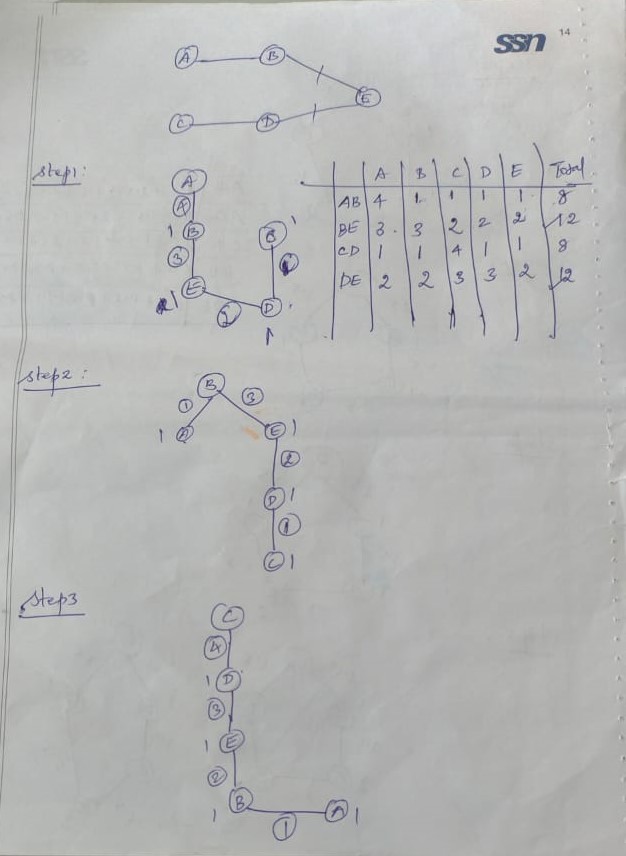 ssn 14
A B
E
C D
Step1: A
4
1 B B 1
3
E
2 D
1
A B C D E Total
AB 4 1 1 1 1 8
BE 3 3 2 2 2 12
CD 1 1 4 1 1 8
DE 2 2 3 3 2 12
Step2: B
1 3
1 A E 1
2
D 1
1
C 1
Step3
C
4
1 D
3
1 E
2
1 B A 1
1